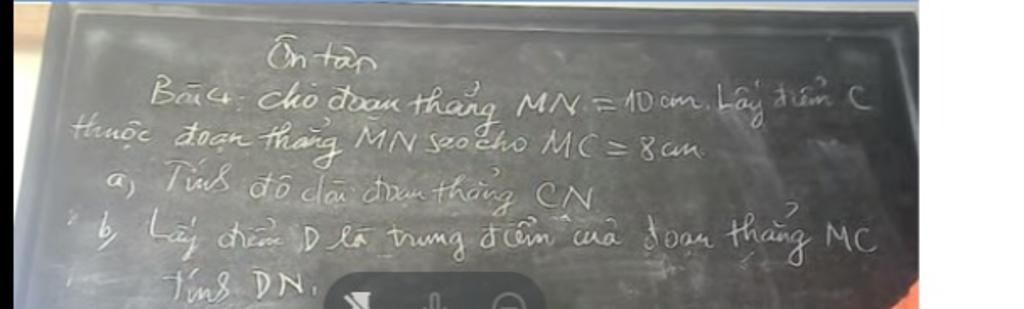 Ôn tập
Bài 4: cho đoạn thẳng MN = 10 cm. Lấy điểm C
thuộc đoạn thẳng MN sao cho MC = 8 cm
a, Tính độ dài đoạn thẳng CN
b, Lấy điểm D là trung điểm của đoạn thẳng MC
Tính DN.